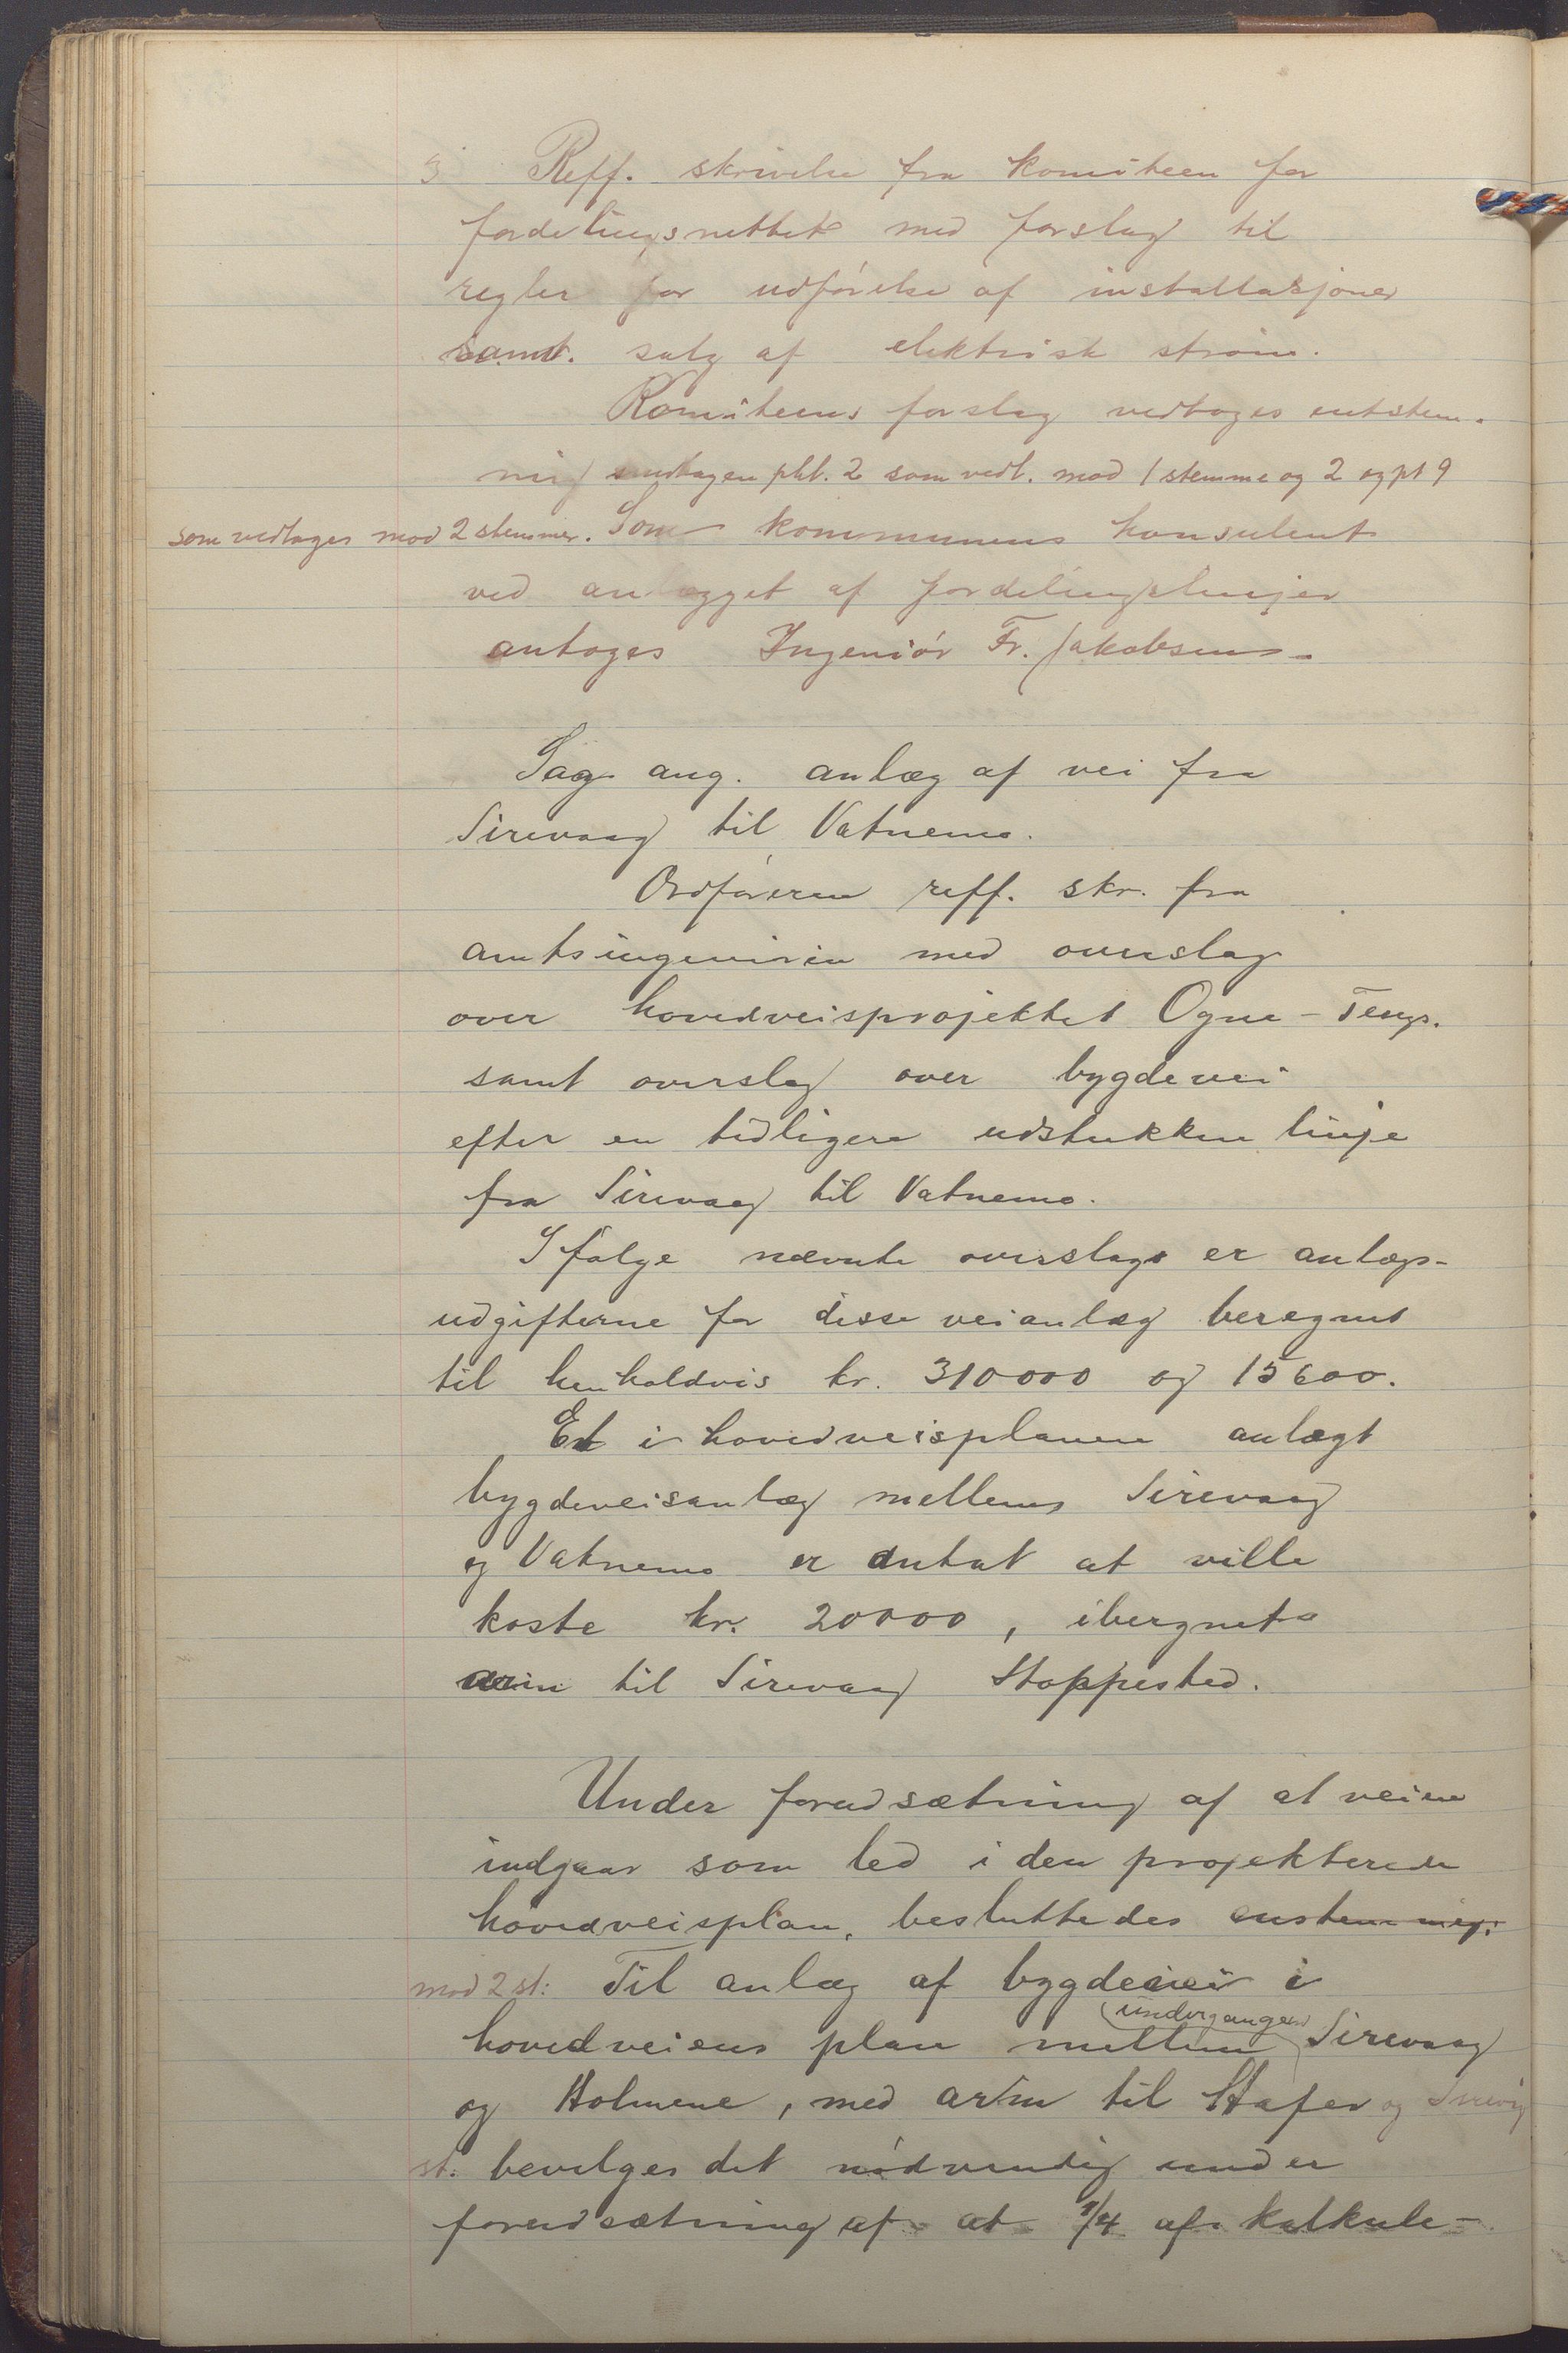 3 Reff. skrivelse fra komiteen for
fordelingsnettet med forslag til
regler for udførelse af installasjoner
samt. salg af elektrisk strøm.
Komiteens forslag vedtoges entstem-
mig undtagen pkt. 2 som vedt. mod 1 stemme og 2 og pt 9
som vedtages mod 2 stemmer. Som kommunens konsulent
ved anlægget af fordelingslinjer
antoges Ingeniør Fr. Jakobsen.
Sag ang. anlæg af vei fra
Sirevaag til Vatnemo.
Ordføreren reff. skr. fra
amtsingeniøren med overslag
over hovedveisprojektet Ogne - Tengs.
samt overslag over bygdevei
efter en tidligere udstukken linje
fra Sirevaag til Vatnemo.
Ifølge nævnte overslag er anlægs-
udgifterne for disse veianlæg beregnet
til henholdvis kr. 310000 og 15600.
Et i hovedveisplanen anlægt
bygdeveisanlæg mellem Sirevaag
og Vatnemo er antat at ville
koste kr. 20000, iberegnet
armen til Sirevaag Stoppested.
Under forudsætning af at veien
indgaar som led i den projekterede
hovedveisplan, besluttedes enstemmig:
mod 2 st: Til anlæg af bygdevei i
undergangen
hovedveiens plan mellem Sirevaag
og Holmene, med arm til Hafen og Sirevåg
st. bevilges det nødvendig under
forudsætning af at 1/4 af kalkule-